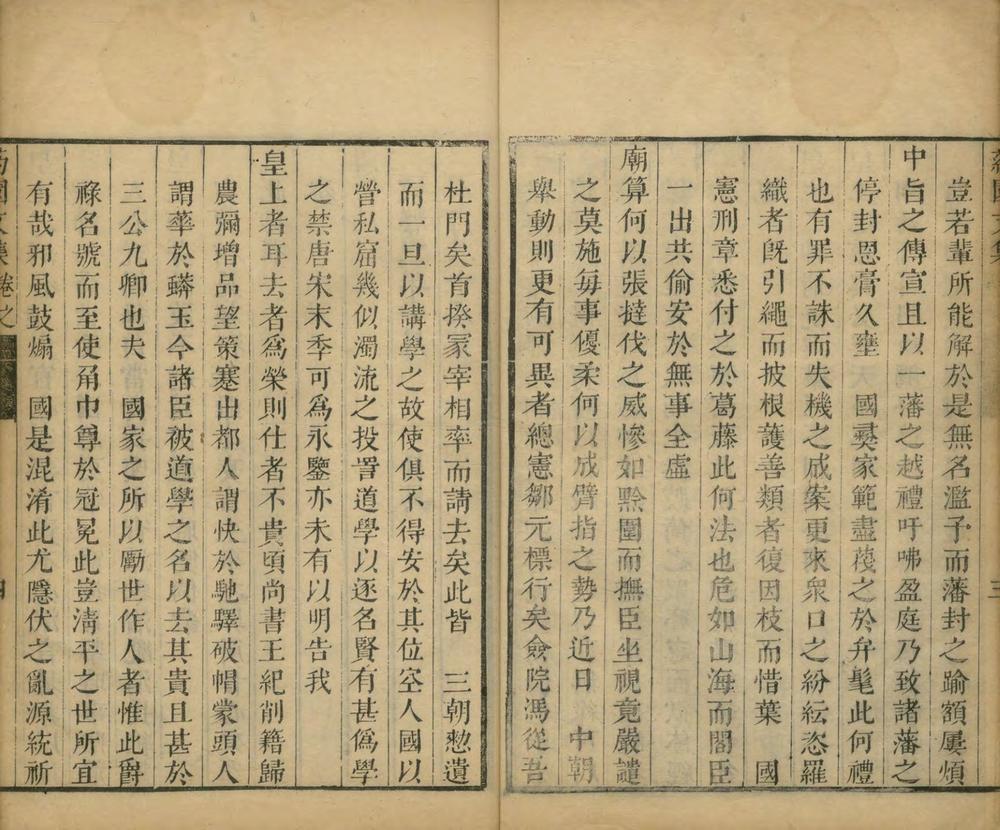 豈若輩所能解於是無名濫予而藩封之踰額屢煩
中旨之傳宣且以一藩之越禮吁咈盈庭乃致諸藩之
停封恩膏久壅　國彝家範盡蔑之於弁髦此何禮
也有罪不誅而失機之成案更來衆口之紛紜恣羅
織者旣引繩而披根護善類者復因枝而惜葉　國
憲刑章悉付之於葛藤此何法也危如山海而閣臣
一出共偷安於無事全虛
廟算何以張撻伐之威慘如黔圍而撫臣坐視竟嚴譴
之莫施每事優柔何以成臂指之勢乃近日　中朝
舉動則更有可異者總憲鄒元標行矣僉院馮從吾
杜門矣首揆冢宰相率而請去矣此皆　三朝憖遺
而一旦以講學之故使俱不得安於其位空人國以
營私窟幾似濁流之投詈道學以逐名賢有甚僞學
之禁唐宋末季可爲永鑒亦未有以明告我
皇上者耳去者爲榮則仕者不貴頃尚書王紀削籍歸
農彌增品望策蹇出都人謂快於馳驛破帽蒙頭人
謂華於蟒玉今諸臣被道學之名以去其貴且甚於
三公九卿也夫　國家之所以勵世作人者惟此爵
祿名號而至使角巾尊於冠冕此豈淸平之世所宜
有哉邪風鼓煽　國是混淆此尤隱伏之亂源統祈